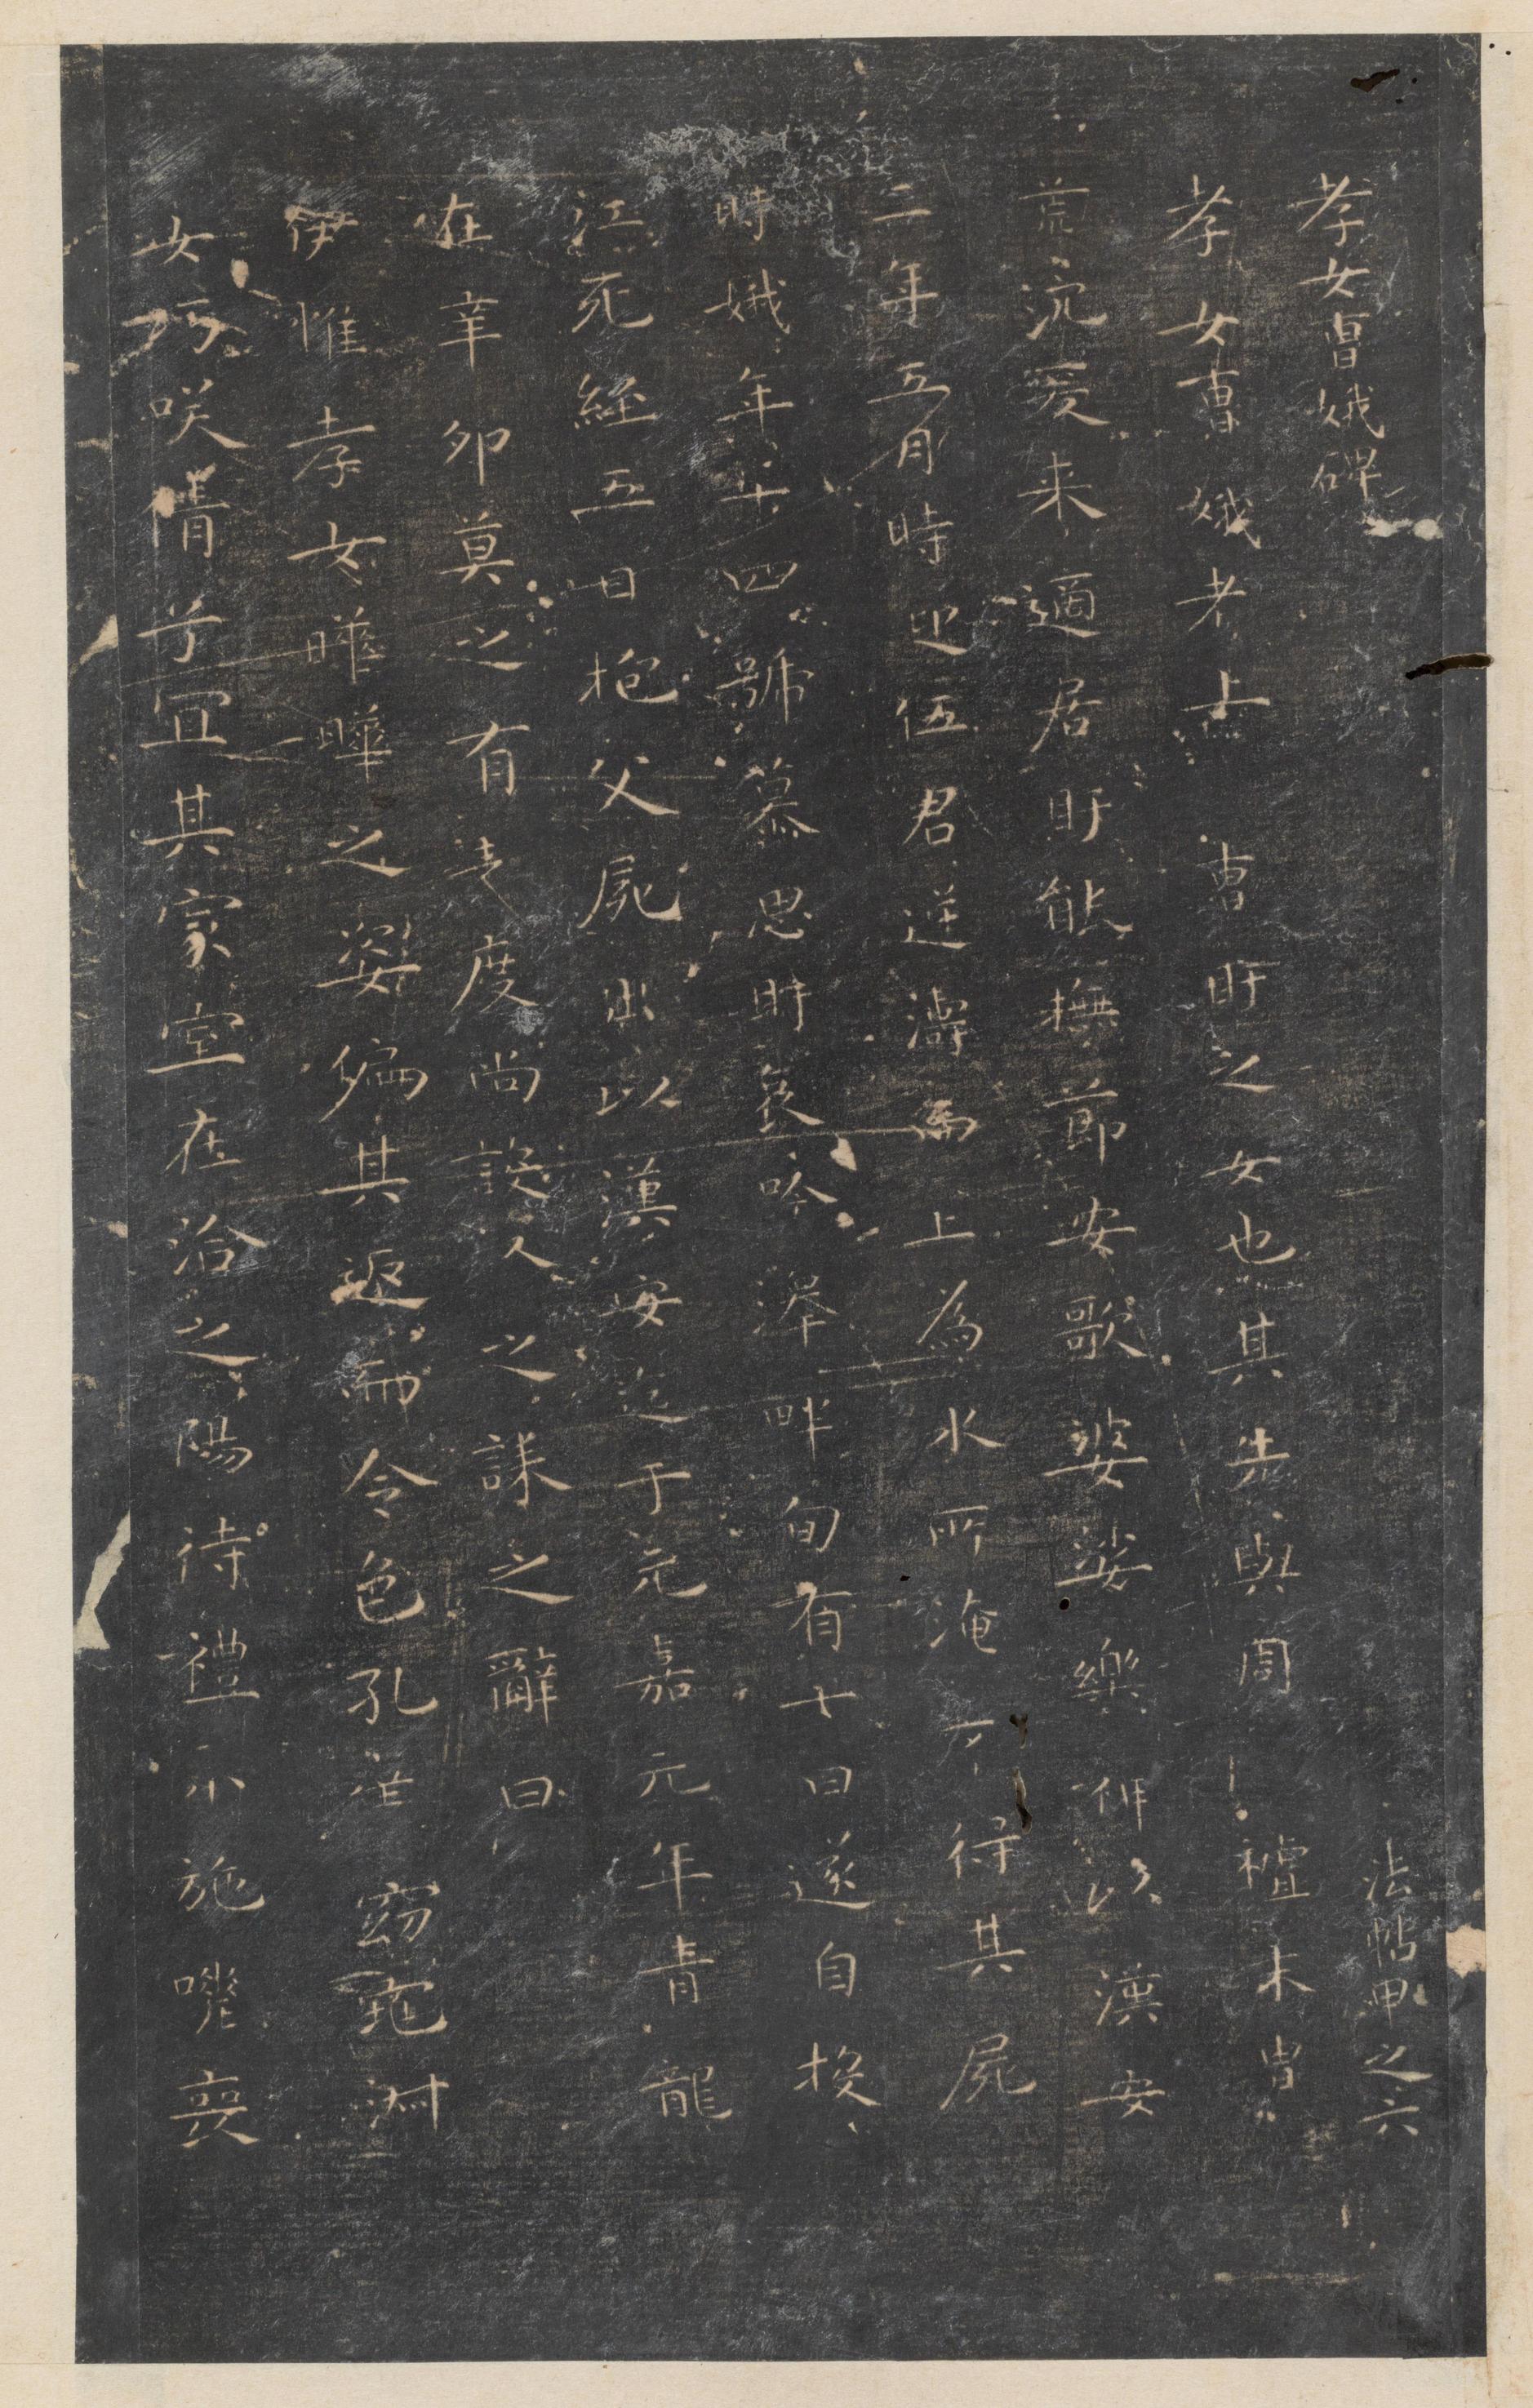 孝女曹娥碑
法帖甲之六
孝女曹娥者上 曹盱之女也其先與周 檀末胄
荒沉爰来適居盱能撫節安歌婆娑樂神以漢安
二年五月時迎伍君逆濤而上為水所淹不得其屍
時娥年十四號慕思盱哀吟澤畔旬有七日遂自投
江死經五日抱父屍出以漢安迄于元嘉元年青龍
在辛卯莫之有表度尚設人之誄之辭曰
伊惟孝女曄曄之姿偏其返而令色孔 窈窕淑
女巧咲倩兮宜其家室在洽之陽待禮未施嗟喪